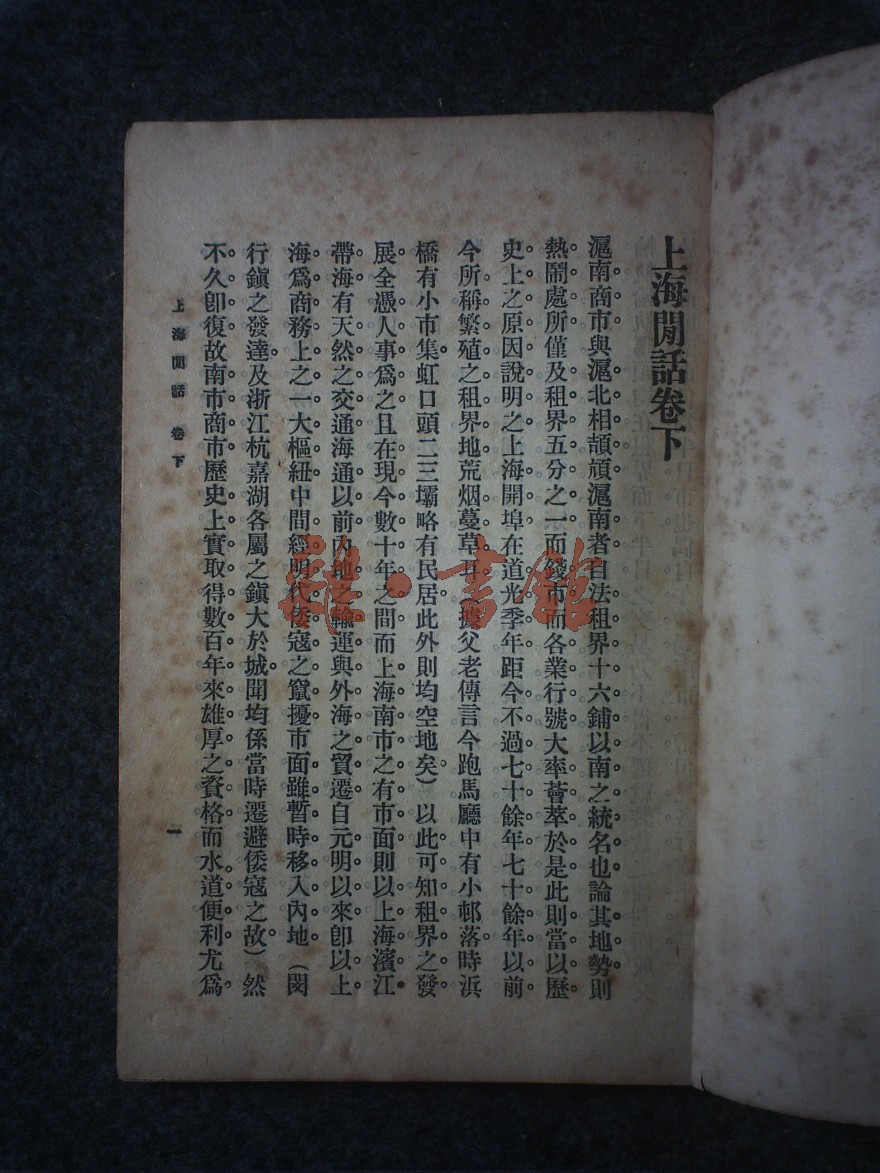 上海閒話卷下
滬南商市與滬北相頡頏滬南者自法租界十六鋪以南之統名也論其地勢則
熱鬧處所僅及租界五分之一而錢市而各業行號大率薈萃於是此則當以歷
史上之原因說明之上海開埠在道光季年距今不過七十餘年七十餘年以前
今所稱繁殖之租界地荒烟蔓草耳(據父老傳言今跑馬廳中有小邨落時浜
橋有小市集虹口頭二三壩略有民居此外則均空地矣)以此可知租界之發
展全憑人事爲之且在現今數十年之間而上海南市之有市面則以上海濱江
帶海有天然之交通海通以前內地之輸運與外海之貿遷自元明以來卽以上
海爲商務上之一大樞紐中間經明代倭寇之竄擾市面雖暫時移入內地(閔
行鎭之發達及浙江杭嘉湖各屬之鎭大於城聞均係當時遷避倭寇之故)然
不久卽復故南市商市歷史上實取得數百年來雄厚之資格而水道便利尤爲
上海閒話 卷下
一
雜·書館